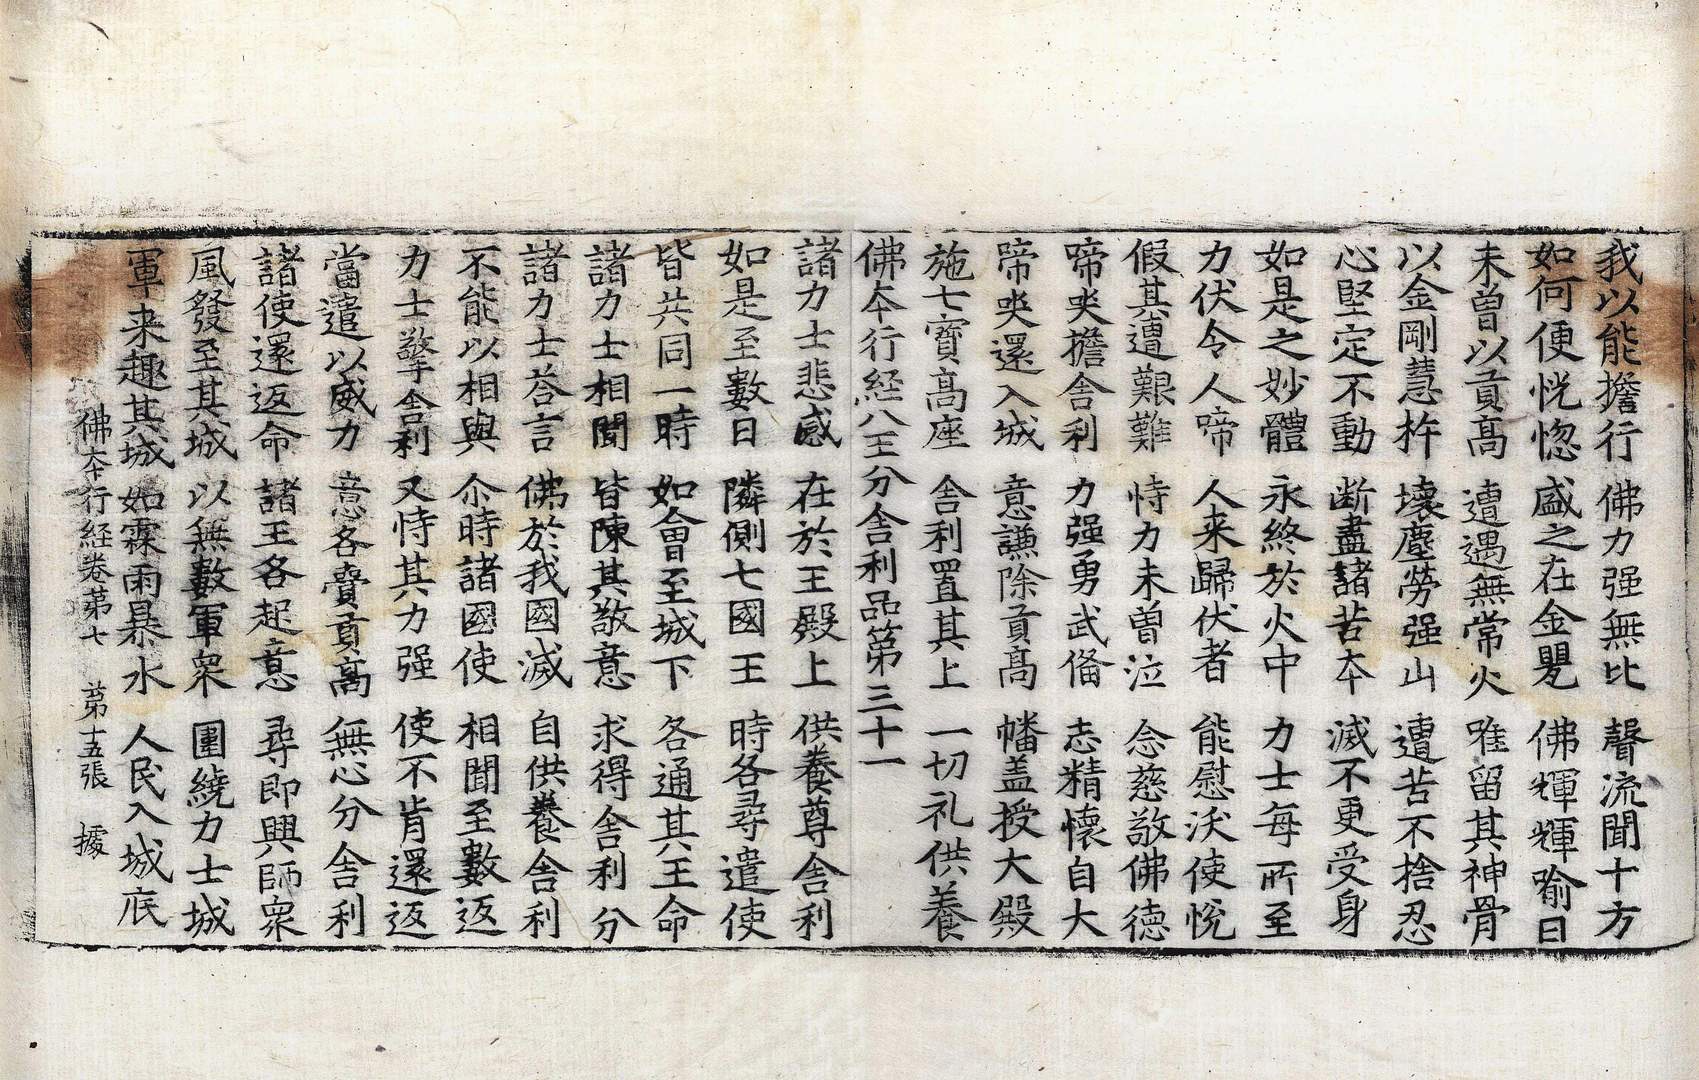 我以能擔行 佛力强無比 聲流聞十方
如何便恍惚 盛之在金甖 佛輝輝喻日
未曾以貢高 遭遇無常火 唯留其神骨
以金剛慧杵 壞塵勞强山 遭苦不捨忍
心堅定不動 断盡諸苦本 滅不更受身
如是之妙體 永終於火中 力士每所至
力伏令人啼 人来歸伏者 能慰沃使悅
假其遭艱難 恃力未曾泣 念慈敬佛德
啼哭擔舎利 力强勇武俻 志精懷自大
啼哭還入城 意謙除貢髙 幡盖授大殿
施七寶髙座 舎利置其上 一切礼供養
佛本行経八王分舎利品第三十一
諸力士悲感 在於王殿上 供養尊舎利
如是至數日 隣側七國王 時各尋遣使
皆共同一時 如會至城下 各通其王命
諸力士相聞 皆陳其敬意 求得舎利分
諸力士荅言 佛於我國滅 自供養舎利
不能以相與 尒時諸國使 相聞至數返
力士擎舎利 又恃其力强 使不肯還返
當遣以威力 意各賷貢髙 無心分舎利
諸使還返命 諸王各起意 尋即興師衆
風發至其城 以無數軍衆 圍繞力士城
軍来趣其城 如霖雨暴水 人民入城底
佛本行経卷苐七 苐十五張 據